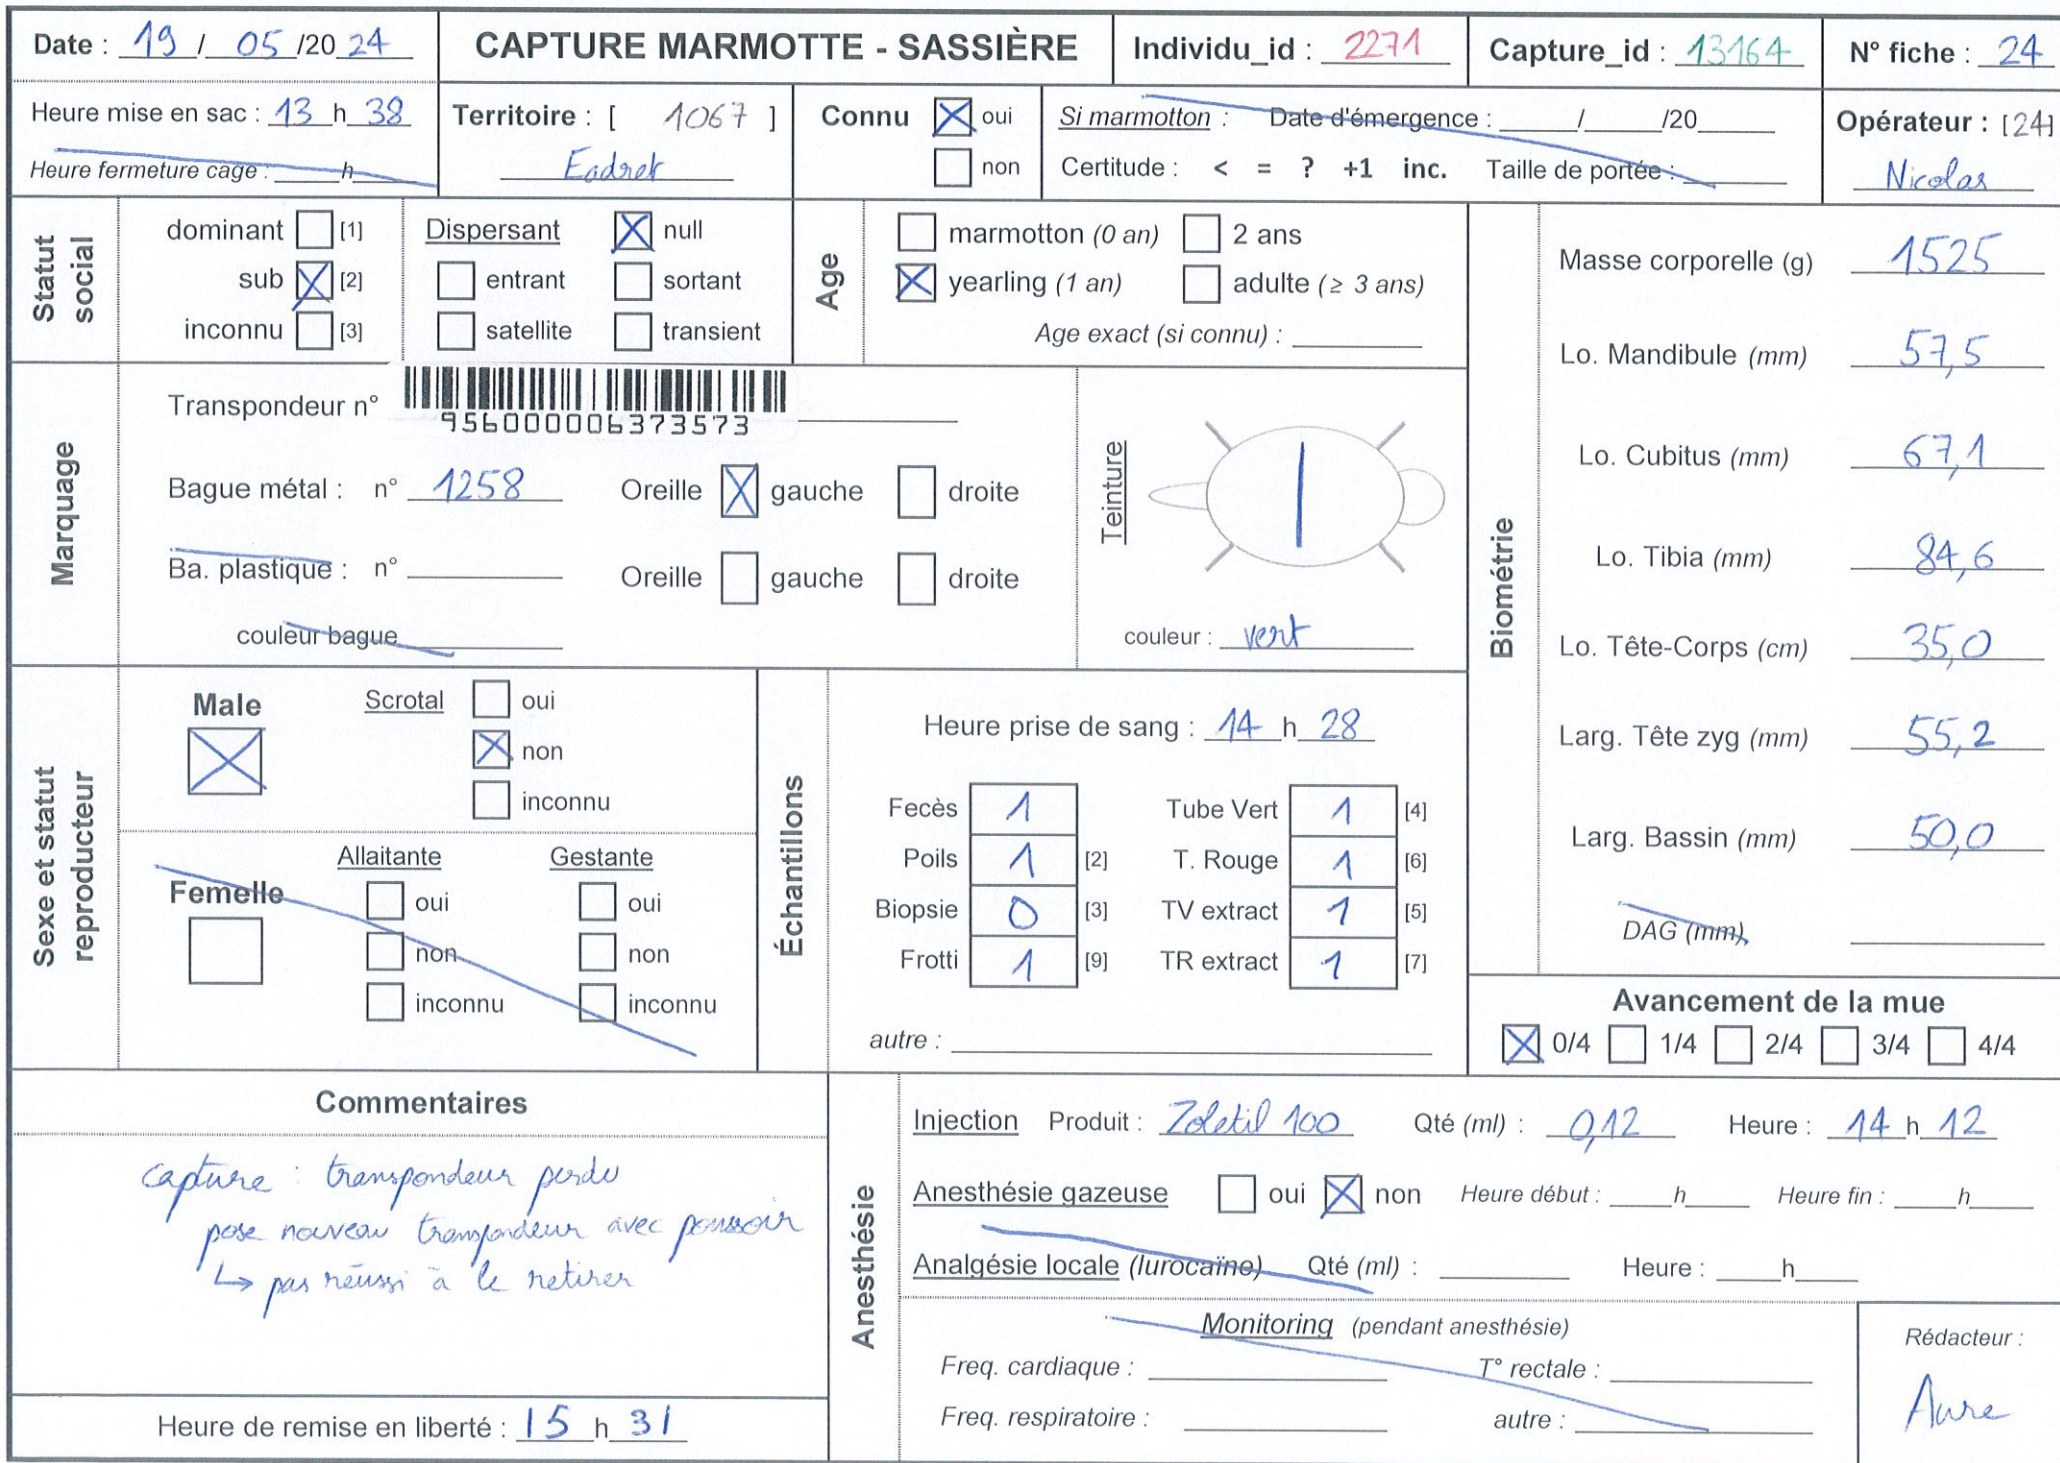 Date : 19 / 05 /20 24
CAPTURE MARMOTTE - SASSIÈRE
Individu_id : 2271
Capture_id : 13164
N° fiche : 24
Heure mise en sac : 13 h 38
Heure fermeture cage : h
Territoire : [ 1067 ]
Eadret
Connu oui
non
Si marmotton : Date d'émergence : / /20
Certitude : < = ? +1 inc. Taille de portée :
Opérateur : [24]
Nicolas
Statut social
dominant [1]
sub [2]
inconnu [3]
Dispersant null
entrant sortant
satellite transient
Age
marmotton (0 an) 2 ans
yearling (1 an) adulte (≥ 3 ans)
Age exact (si connu) :
Marquage
Transpondeur n°
956000006373573
Bague métal : n° 1258 Oreille gauche droite
Ba. plastique : n° Oreille gauche droite
couleur bague
Teinture
couleur : vert
Biométrie
Masse corporelle (g) 1525
Lo. Mandibule (mm) 57,5
Lo. Cubitus (mm) 67,1
Lo. Tibia (mm) 84,6
Lo. Tête-Corps (cm) 35,0
Larg. Tête zyg (mm) 55,2
Larg. Bassin (mm) 50,0
DAG (mm)
Sexe et statut reproducteur
Male
Scrotal oui
non
inconnu
Femelle
Allaitante
oui
non
inconnu
Gestante
oui
non
inconnu
Échantillons
Heure prise de sang : 14 h 28
Fecès 1 Tube Vert 1 [4]
Poils 1 [2] T. Rouge 1 [6]
Biopsie 0 [3] TV extract 1 [5]
Frotti 1 [9] TR extract 1 [7]
autre :
Avancement de la mue
0/4 1/4 2/4 3/4 4/4
Commentaires
capture : transpondeur perdu
pose nouveau transpondeur avec poussoir
↳ pas réussi à le retirer
Heure de remise en liberté : 15 h 31
Anesthésie
Injection Produit : Zoletil 100 Qté (ml) : 0,12 Heure : 14 h 12
Anesthésie gazeuse oui non Heure début : h Heure fin : h
Analgésie locale (lurocaïne) Qté (ml) : Heure : h
Monitoring (pendant anesthésie)
Freq. cardiaque : T° rectale :
Freq. respiratoire : autre :
Rédacteur :
Aure